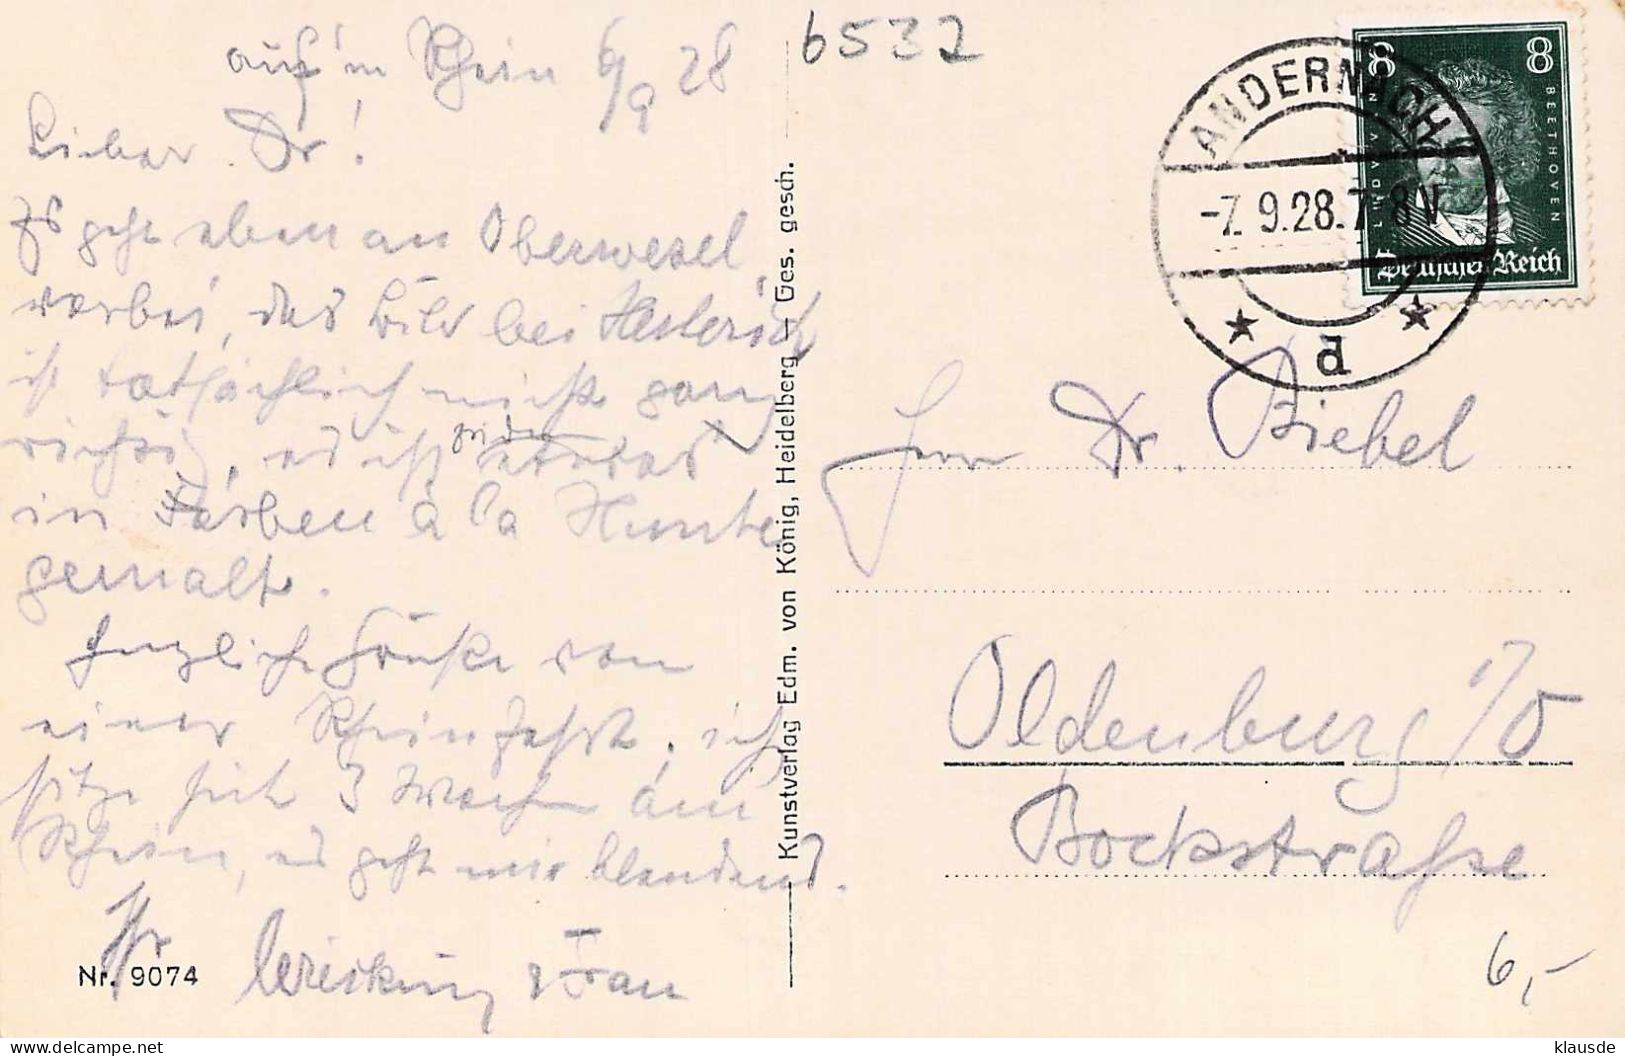 6532
auf'm Rhein 6/9 28
Lieber Dr!
Es geht eben an Oberwesel
vorbei, das Bild bei
ist tatsächlich nicht ganz
richtig, es ist zu
in Farben à la
gemalt.
Herzliche Grüße von
einer Rheinfahrt, ich
sitze seit 3 Wochen am
Rhein, es geht mir blendend.
Ihr
Frau
Nr. 9074
Kunstverlag Edm. von König, Heidelberg — Ges. gesch.
ANDERNACH
-7.9.28.7-8V
d
8 8
LUDWIG VAN BEETHOVEN
Deutsches Reich
Herrn Dr. Biebel
Oldenburg i/O
Bockstraße
6,-
delcampe.net
klausde